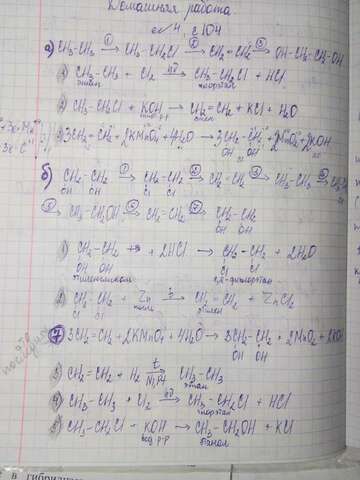 Домашняя работа.
№4, с 104
а) CH₃-CH₃ →① CH₃-CH₂Cl →② CH₂=CH₂ →③ OH-CH₂-CH₂-OH
1) CH₃-CH₃ + Cl₂ →hν CH₃-CH₂Cl + HCl
этан хлорэтан
2) CH₃-CH₂Cl + KOH → CH₂=CH₂ + KCl + H₂O
этен
3) 3CH₂=CH₂ + 2KMnO₄ + 4H₂O → 3CH₂-CH₂ + 2MnO₂ + 2KOH
OH OH
б) CH₂-CH₂ →① CH₂-CH₂ →② CH₂=CH₂ →③ CH₃-CH₃ →④
OH OH Cl Cl
→⑤ CH₃-CH₂OH →⑥ CH₂=CH₂ →⑦ CH₂-CH₂
OH OH
1) CH₂-CH₂ + 2HCl → CH₂-CH₂ + 2H₂O
OH OH Cl Cl
этиленгликоль
2) CH₂-CH₂ + Zn →t CH₂=CH₂ + ZnCl₂
Cl Cl этилен
⑦ 3CH₂=CH₂ + 2KMnO₄ + 4H₂O → 3CH₂-CH₂ + 2MnO₂ + 2KOH
OH OH
это последнее
3) CH₂=CH₂ + H₂ →t Ni, Pt CH₃-CH₃
этан
4) CH₃-CH₃ + Cl₂ →hν CH₃-CH₂Cl + HCl
хлорэтан
5) CH₃-CH₂Cl + KOH → CH₃-CH₂OH + KCl
вод р-р этанол